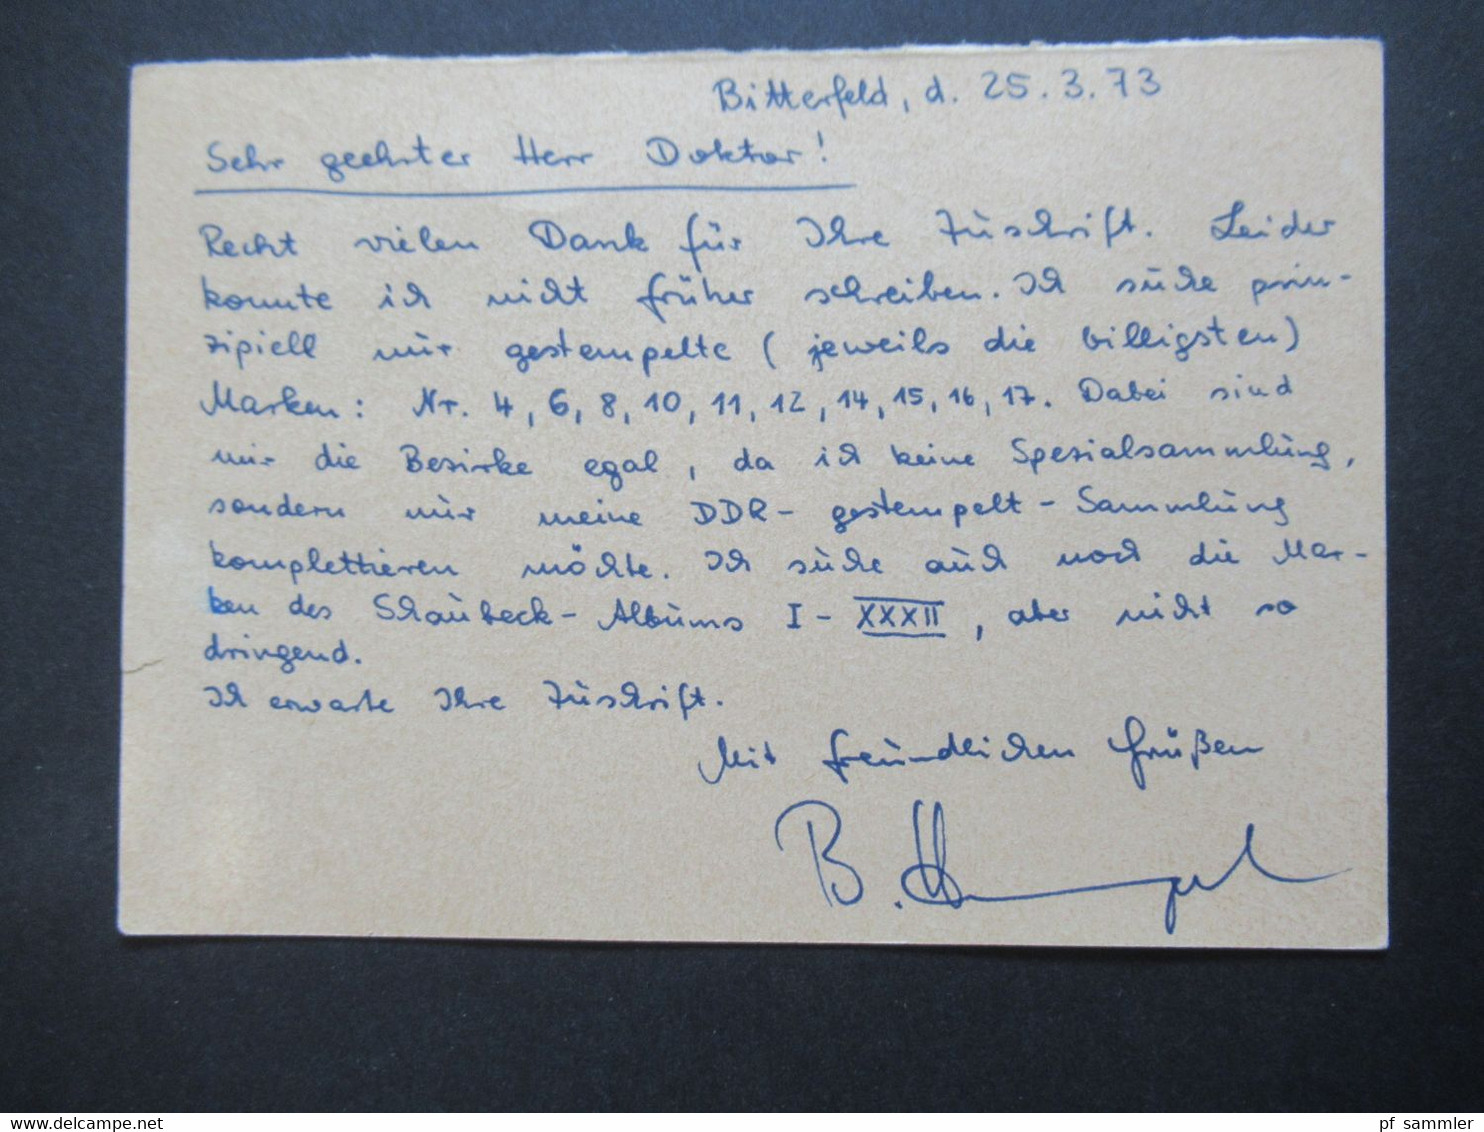 Bitterfeld, d. 25.3.73
Sehr geehrter Herr Doktor!
Recht vielen Dank für Ihre Zuschrift. Leider
konnte ich nicht früher schreiben. Ich suche prin-
zipiell nur gestempelte (jeweils die billigsten)
Marken: Nr. 4, 6, 8, 10, 11, 12, 14, 15, 16, 17. Dabei sind
mir die Bezirke egal, da ich keine Spezialsammlung,
sondern nur meine DDR-gestempelt-Sammlung
komplettieren möchte. Ich suche auch noch die Mar-
ken des Schaubeck-Albums I - XXXII, aber nicht so
dringend.
Ich erwarte Ihre Zuschrift.
Mit freundlichen Grüßen
B.
www.delcampe.net
pf_sammler